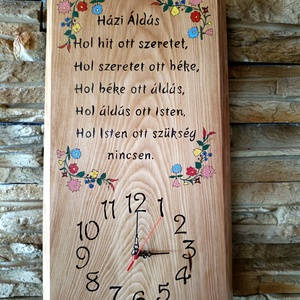 Házi Áldás
Hol hit ott szeretet,
Hol szeretet ott béke,
Hol béke ott áldás,
Hol áldás ott Isten,
Hol Isten ott szükség
nincsen.
11 12 1
10 2
9 3
8 4
7 6 5